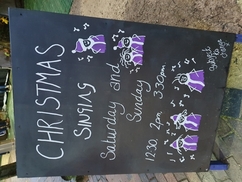 CHRISTMAS
SINGING
Saturday and
Sunday
12.30 2pm 3.30pm
subject
to
change